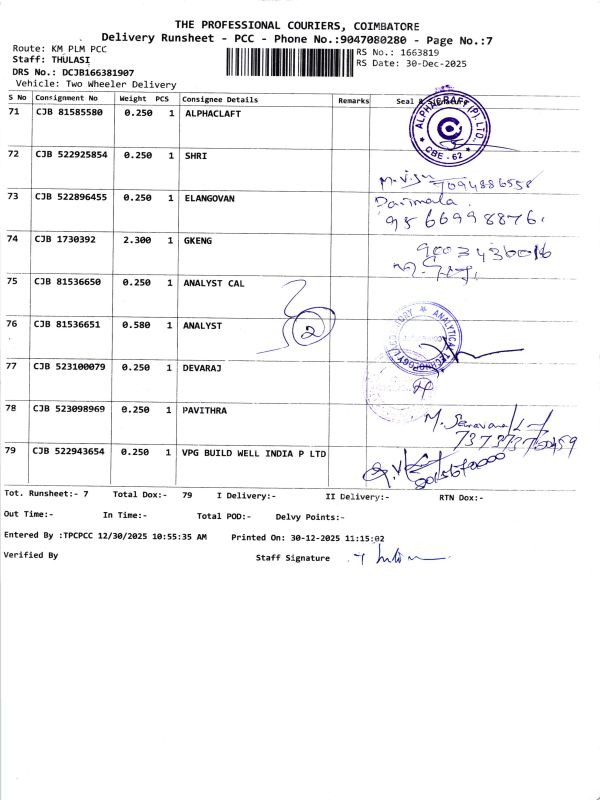 THE PROFESSIONAL COURIERS, COIMBATORE
Delivery Runsheet - PCC - Phone No.:9047080280 - Page No.:7
Route: KM PLM PCC
RS No.: 1663819
Staff: THULASI
RS Date: 30-Dec-2025
DRS No.: DCJB166381907
Vehicle: Two Wheeler Delivery
S No Consignment No Weight PCS Consignee Details Remarks Seal & Signature
71 CJB 81585580 0.250 1 ALPHACLAFT
ALPHACRAFT (P) LTD. CBE - 62
72 CJB 522925854 0.250 1 SHRI
7094886558
73 CJB 522896455 0.250 1 ELANGOVAN
Parimala.
9566998876.
74 CJB 1730392 2.300 1 GKENG
9003436016
75 CJB 81536650 0.250 1 ANALYST CAL
76 CJB 81536651 0.580 1 ANALYST
2
ANALYTICAL
77 CJB 523100079 0.250 1 DEVARAJ
78 CJB 523098969 0.250 1 PAVITHRA
M.
79 CJB 522943654 0.250 1 VPG BUILD WELL INDIA P LTD
Tot. Runsheet:- 7 Total Dox:- 79 I Delivery:- II Delivery:- RTN Dox:-
Out Time:- In Time:- Total POD:- Delvy Points:-
Entered By :TPCPCC 12/30/2025 10:55:35 AM Printed On: 30-12-2025 11:15:02
Verified By Staff Signature